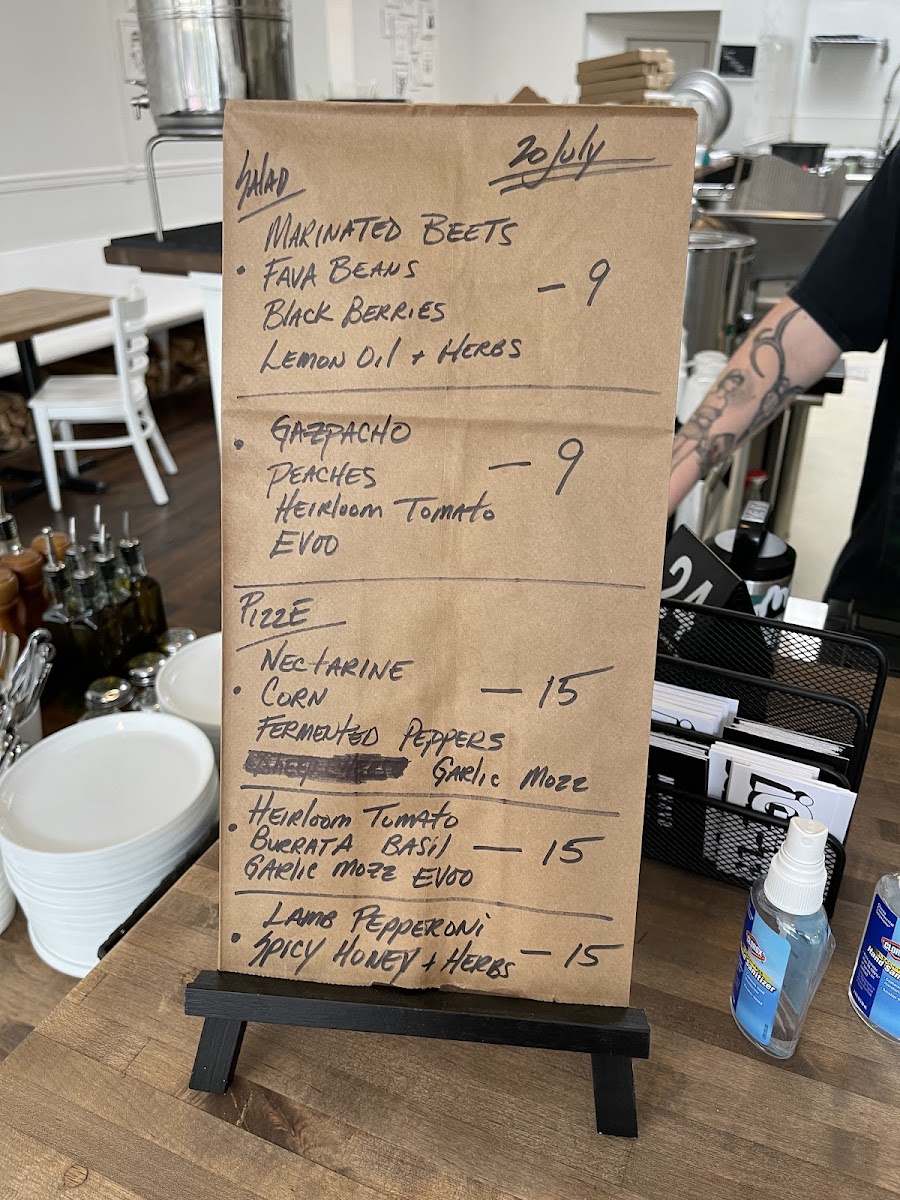 20 July
Salad
Marinated Beets
• Fava Beans
Black Berries
Lemon Oil + Herbs
– 9
• Gazpacho
Peaches
Heirloom Tomato
EVOO
– 9
Pizze
Nectarine
• Corn
Fermented Peppers
Garlic Mozz
– 15
• Heirloom Tomato
Burrata Basil – 15
Garlic Mozz EVOO
Lamb Pepperoni
• Spicy Honey + Herbs – 15
24
CLOROX
Hand Sanitizer
CLOROX